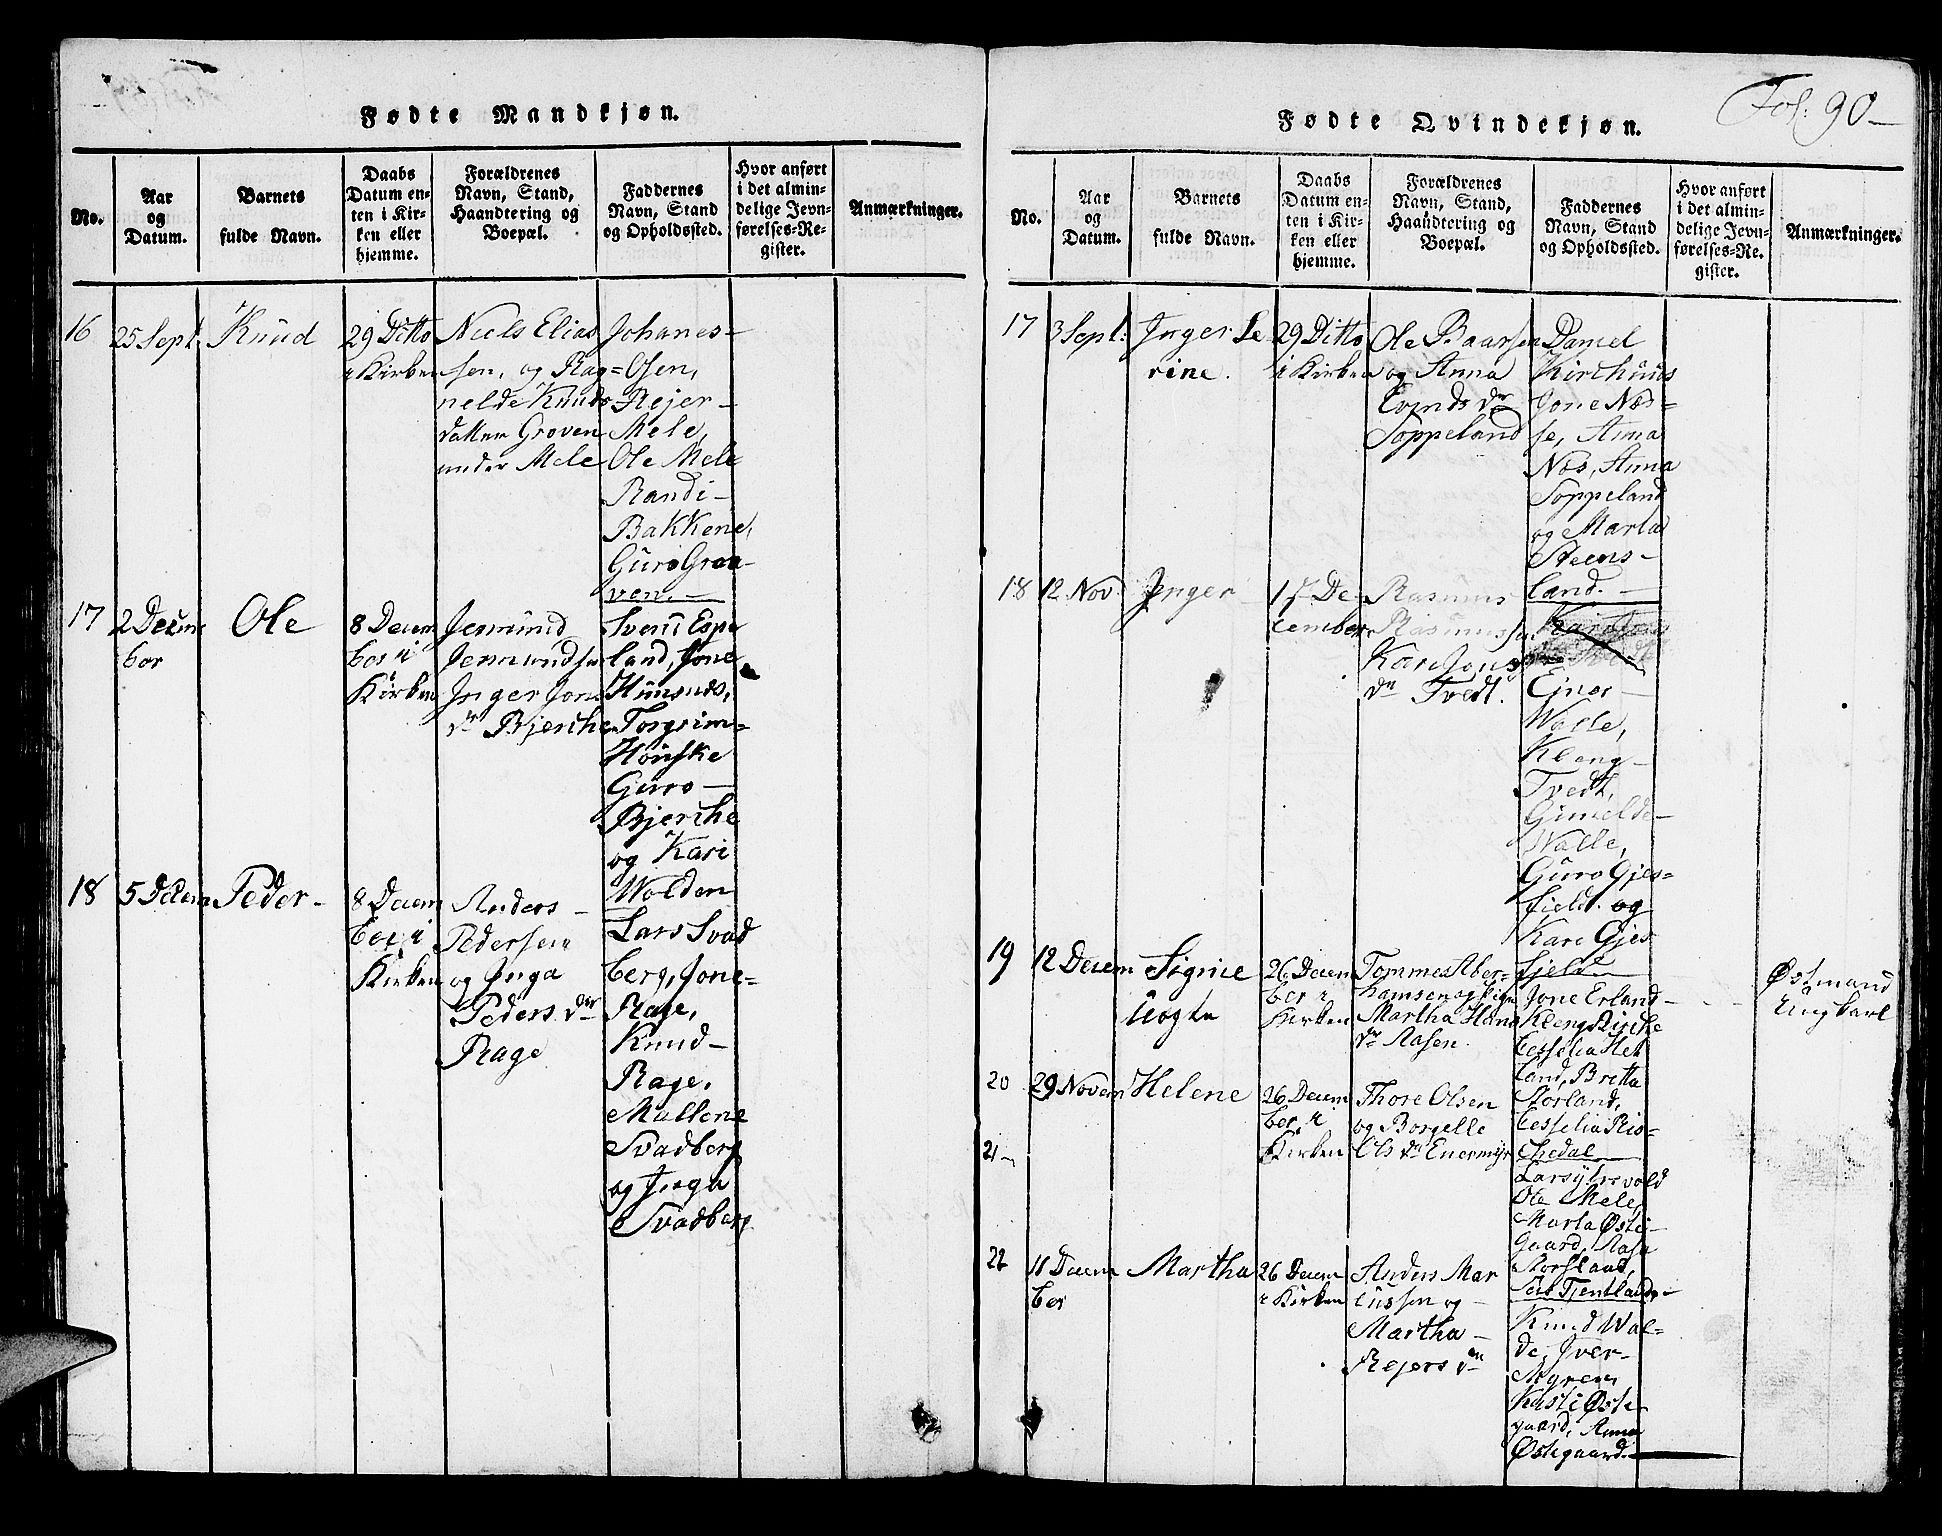 Fødte Mandkjøn.
No.
Aar
og
Datum.
Barnets
fulde Navn.
Daabs
Datum en-
ten i Kir-
ken eller
hjemme.
Forældrenes
Navn, Stand,
Haandtering og
Boepæl.
Faddernes
Navn, Stand
og Opholdssted.
Hvor anført
i det almin-
delige Jevn-
førelses-Re-
gister.
Anmærkninger.
16
25 Sept.
Knud
29 Ditto
i Kirken
Niels Elias
sen, og Rag=
nelde Knuds
datter Groven
under Mele
Johanes-
Olsen,
Rejer-
Mele,
Ole Mele
Randi-
Bakkene,
Guro Graa-
ven.-
17
2 Decem
ber
Ole
8 Decem
ber i
Kirken
Jemund
Jemundsen
Inger Jons
dr Bjerche
Svend Espe
land, Jone
Torgrim=
Hønske
Guro-
Bjerche
og Kari
Wolden
18
5 Decem
Peder-
8 Decem
ber i
Kirken
Anders-
Pedersen
og Inga
Peders dr
Rage
Lars Svad
berg, Jone-
Rage,
Knud-
Rage,
Mallene
Svadberg
og Inga
Svadberg
Fol: 90-
Fødte Qvindekjøn.
No.
Aar
og
Datum.
Barnets
fulde Navn.
Daabs
Datum en-
ten i Kir-
ken eller
hjemme.
Forældrenes
Navn, Stand,
Haandtering og
Boepæl.
Faddernes
Navn, Stand
og Opholdssted.
Hvor anført
i det almin-
delige Jevn-
førelses-Re-
gister.
Anmærkninger.
17
3 Sept:
Inger Se
rine.
29 Ditto
i Kirken
Ole Baarsen
og Anna
Evinds dr
Soppeland
Daniel
Kirkhuus
Jone Næs=
se, Anna
Nes, Anna
Soppeland
og Marta
Steens-
land.-
18
12 Nov.
Inger
17 De
cember
Rasmus
Rasmussen
Kari Jons
dr Tvedt.
Ejner-
Walle,
Kleng-
Tvedt,
Gunilde-
Walle,
Guro Gjes=
field. og
Kari Gjes
fjeld
19
12 Decem
Signe
26 Decem
ber i
Kirken
Tommes Aber=
hamsen og Pige
Martha Hans
dr Aasen.
Jone Erland-
Kleng Birke
Cesselia Het
land, Britta
Storland,
Cesselia Ris=
chedal
Østmand
Ungkarl
20
29 Novem
Helene
26 Decem
ber i
Kirken
Thore Olsen
og Borgelle
Ols dr Enermyr
21-
Ole Mele,
Marta Øste-
gaard, Aasa
Storsland,
22
11 Decem
ber
Martha
26 Decem
i Kirken
Anders Mar
cussen og-
Martha-
Rejers dr
Knud Wal=
de, Iver-
Myren,
Kasti Øste-
gaard, Anna
Østegaard.